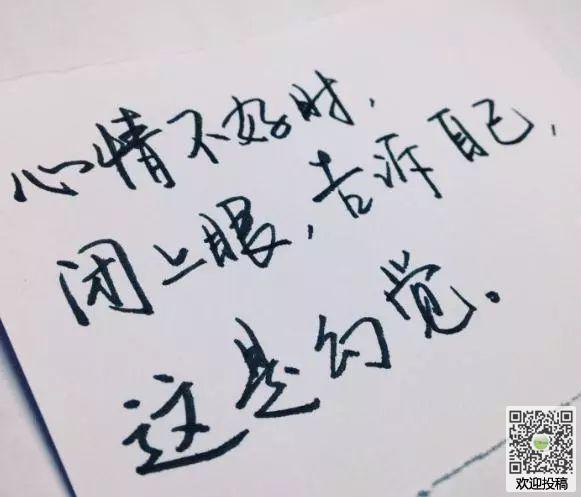 心情不好时，
闭上眼，告诉自己，
这是幻觉。
欢迎投稿